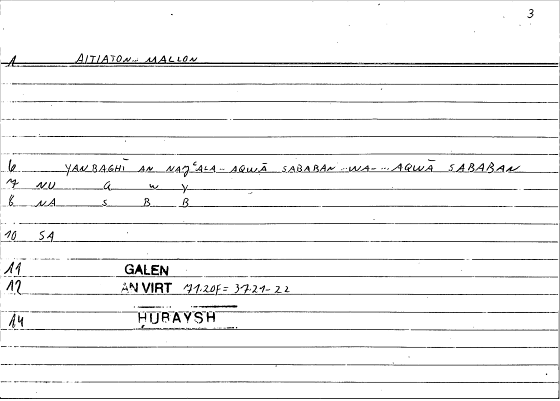 3
1 AITIATON... MALLON
6 YANBAGHĪ AN NAJʿALA... AQWĀ SABABAN ...WA-... AQWĀ SABABAN
7 NU G W Y
8 NA S B B
10 SA
11 GALEN
12 AN VIRT 71.20F = 37.21-22
14 ḤUBAYSH